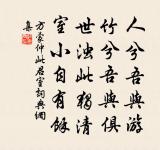 人兮吾與游
竹兮吾與俱
世浊此獨清
室小自有餘
方蒙仲此君室詞典網
集